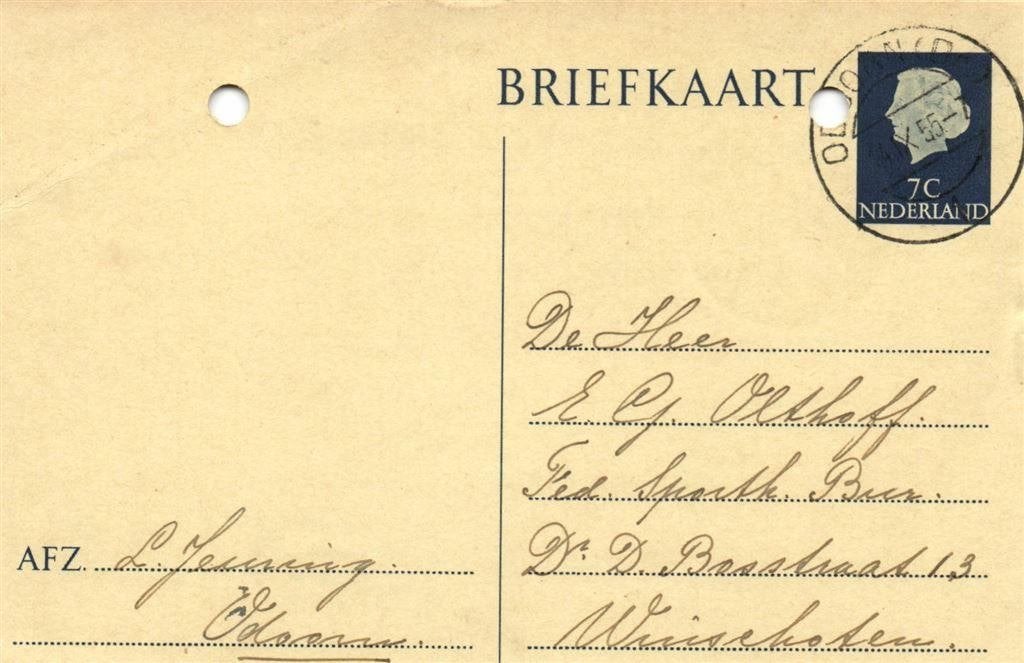 BRIEFKAART
7C
NEDERLAND
De Heer
E. Cj. Olthoff.
Fed. Sporth. Bur.
Dr. D. Bosstraat 13
Winschoten.
AFZ. L. Jeuring.
Odoorn.